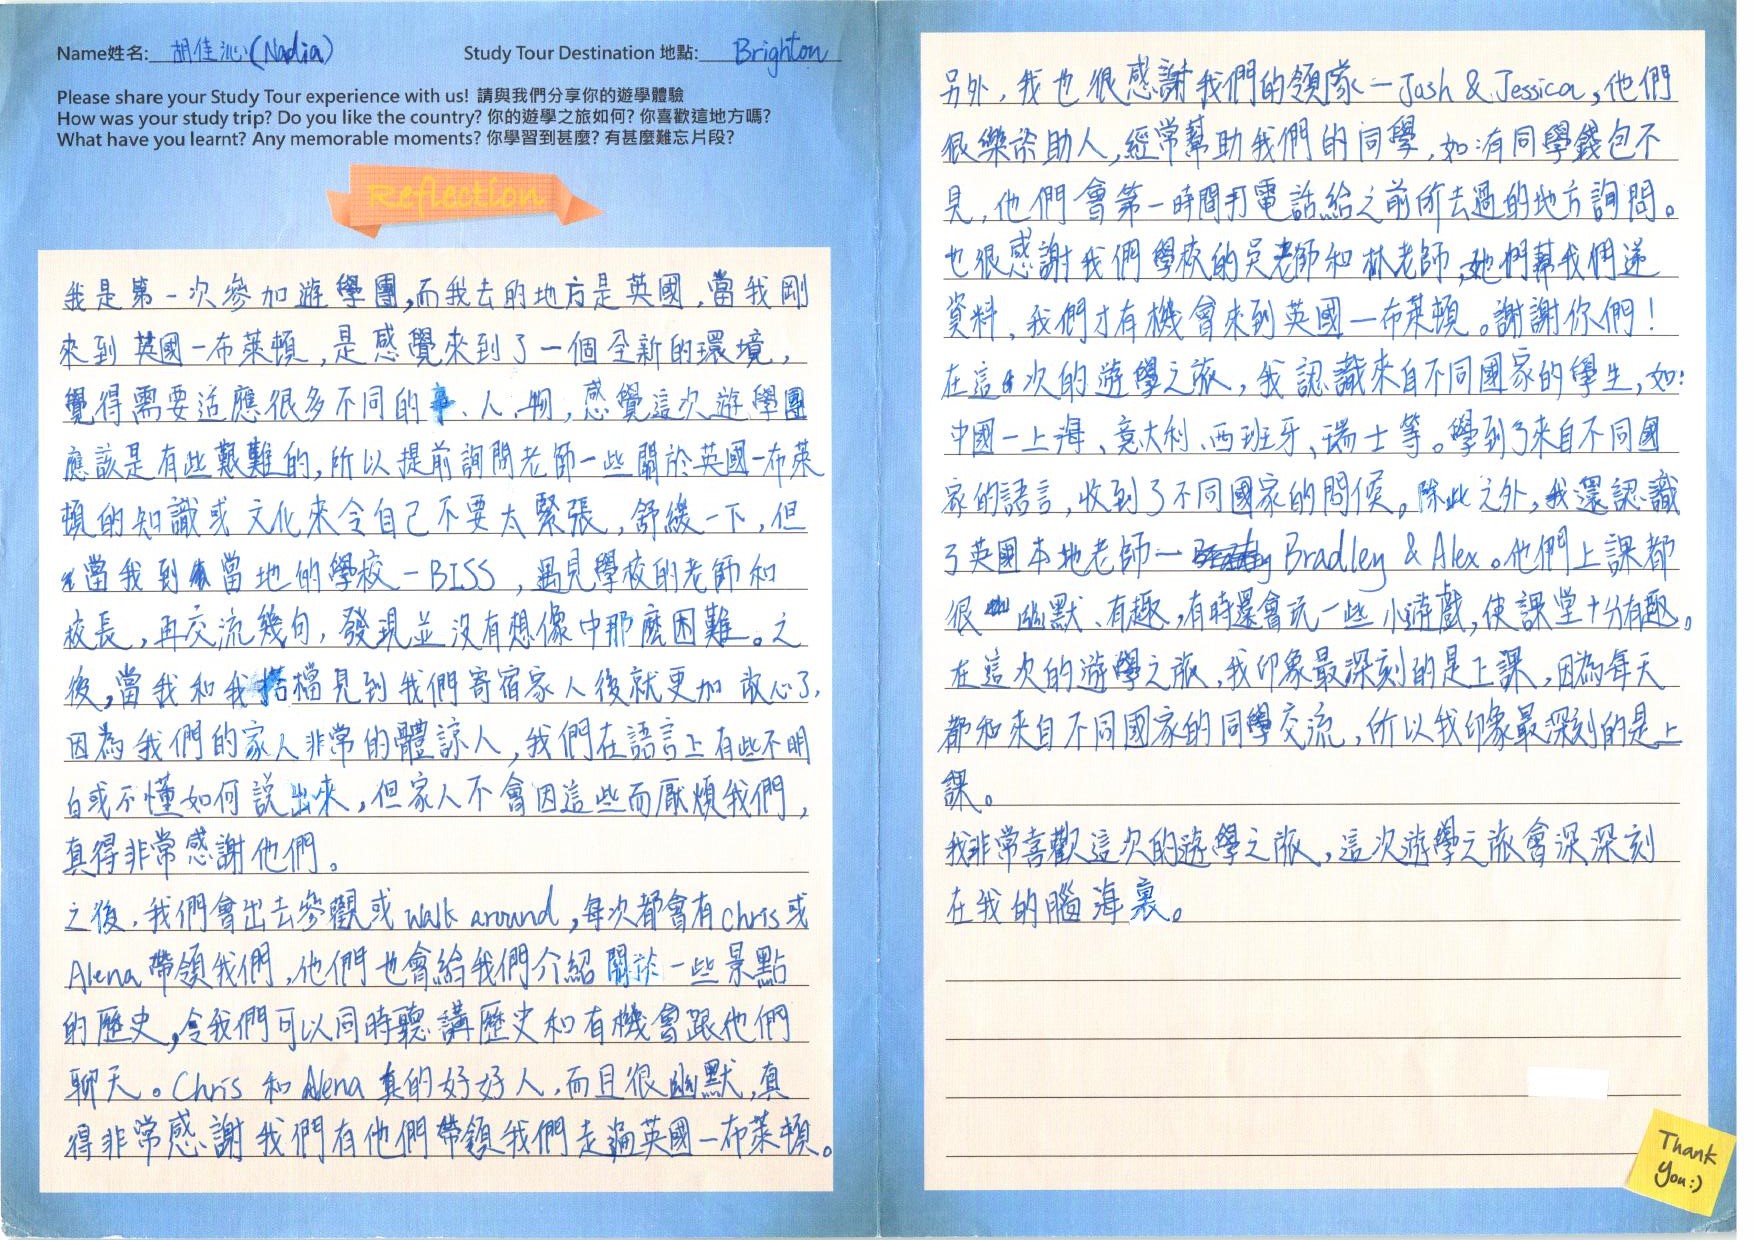 Name姓名: 胡佳沁(Nadia)
Study Tour Destination 地點: Brighton
Please share your Study Tour experience with us! 請與我們分享你的遊學體驗
How was your study trip? Do you like the country? 你的遊學之旅如何? 你喜歡這地方嗎?
What have you learnt? Any memorable moments? 你學習到甚麼? 有甚麼難忘片段?
Reflection
我是第一次參加遊學團,而我去的地方是英國,當我剛
來到英國-布萊頓,是感覺來到了一個全新的環境,
覺得需要适應很多不同的事、人、物,感覺這次遊學團
應該是有些艱難的,所以提前詢問老師一些關於英國-布萊
頓的知識或文化來令自己不要太緊張,舒緩一下,但
當我到當地的學校-BISS,遇見學校的老師和
校長,再交流幾句,發現並沒有想像中那麼困難。之
後,當我和我搭檔見到我們寄宿家人後就更加放心了,
因為我們的家人非常的體諒人,我們在語言上有些不明
白或不懂如何說出來,但家人不會因這些而厭煩我們,
真得非常感謝他們。
之後,我們會出去參觀或walk around,每次都會有chris或
Alena帶領我們,他們也會給我們介紹關於一些景點
的歷史,令我們可以同時聽講歷史和有機會跟他們
聊天。Chris 和 Alena 真的好好人,而且很幽默,真
得非常感謝我們有他們帶領我們走遍英國-布萊頓。
另外,我也很感謝我們的領隊-Josh & Jessica,他們
很樂於助人,經常幫助我們的同學,如:有同學錢包不
見,他們會第一時間打電話給之前所去過的地方詢問。
也很感謝我們學校的吳老師和林老師,她們幫我們遞
資料,我們才有機會來到英國-布萊頓。謝謝你們!
在這次的遊學之旅,我認識來自不同國家的學生,如:
中國-上海、意大利、西班牙、瑞士等。學到了來自不同國
家的語言,收到了不同國家的問侯。除此之外,我還認識
了英國本地老師- Bradley & Alex。他們上課都
很幽默、有趣,有時還會玩一些小遊戲,使課堂十分有趣。
在這次的遊學之旅,我印象最深刻的是上課,因為每天
都和來自不同國家的同學交流,所以我印象最深刻的是上
課。
我非常喜歡這次的遊學之旅,這次遊學之旅會深深刻
在我的腦海裏。
Thank
you:)